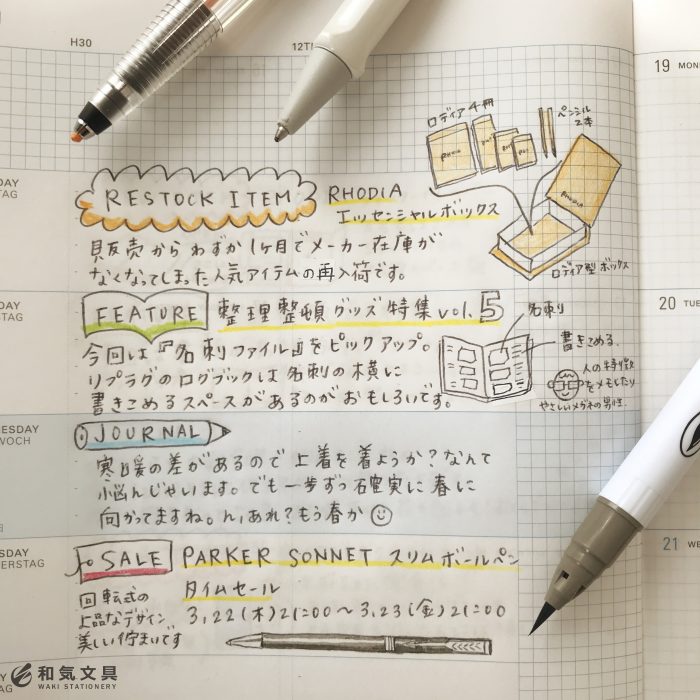 H30
12TH
19 MON
ロディア4冊
ペンシル
2本
RHODIA
RHODIA
RESTOCK ITEM
RHODIA
エッセンシャルボックス
ロディア型ボックス
DAY
TAG
販売からわずか1ヶ月でメーカー在庫が
なくなってしまった人気アイテムの再入荷です。
FEATURE
整理整頓グッズ特集 vol.5
DAY
STAG
20 TUES
名刺
書きこめる
今回は『名刺ファイル』をピックアップ。
リプラグのログブックは名刺の横に
書きこめるスペースがあるのがおもしろいです。
人の特徴
をメモしたり
やさしいメガネの男性
ESDAY
WOCH
JOURNAL
寒暖の差があるので上着を着ようか?なんて
悩んじゃいます。でも一歩ずつ確実に春に
向かってますね。ん、あれ?もう春か
21 WE
SDAY
ERSTAG
SALE
PARKER SONNET スリムボールペン
タイムセール
回転式の
上品なデザイン
美しい佇まいです
3.22(木)21:00～3.23(金)21:00
和気文具
WAKI STATIONERY